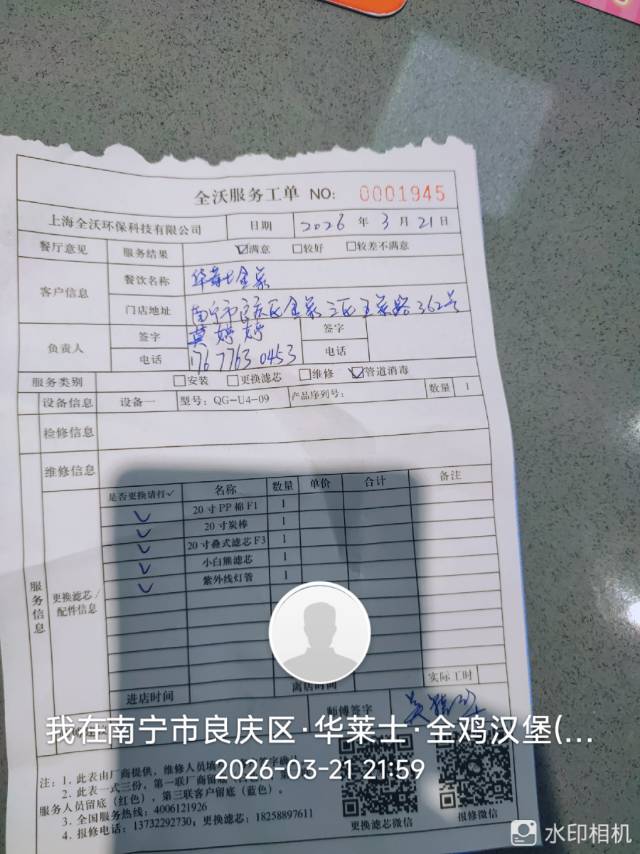 全沃服务工单 NO: 0001945
上海全沃环保科技有限公司 日期 2026 年 3 月 21 日
餐厅意见 服务结果 ☑满意 □较好 □较差不满意
客户信息 餐饮名称 华莱士全泉
门店地址 南宁市良庆区金象三区玉象路362号
负责人 签字 莫婷婷 签字
电话 17677630453 电话
服务类别 □安装 □更换滤芯 □维修 ☑管道消毒
设备信息 设备一 型号: QG-U4-09 产品序列号: 数量 1
检修信息
维修信息
服务信息 更换滤芯/配件信息
是否更换请打✓ 名称 数量 单价 合计 备注
✓ 20寸PP棉F1 1
✓ 20寸炭棒 1
✓ 20寸叠式滤芯F3 1
✓ 小白熊滤芯 1
✓ 紫外线灯管 1
实际工时
进店时间 离店时间
师傅签字
我在南宁市良庆区·华莱士·全鸡汉堡(...
2026-03-21 21:59
注: 1. 此表由厂商提供, 维修人员填
2. 此表一式三份, 第一联厂商留底
服务人员留底(红色), 第三联客户留底(蓝色)。
3. 全国服务热线: 4006121926
4. 报修电话: 13732292730; 更换滤芯: 18258897611
更换滤芯微信 报修微信
水印相机